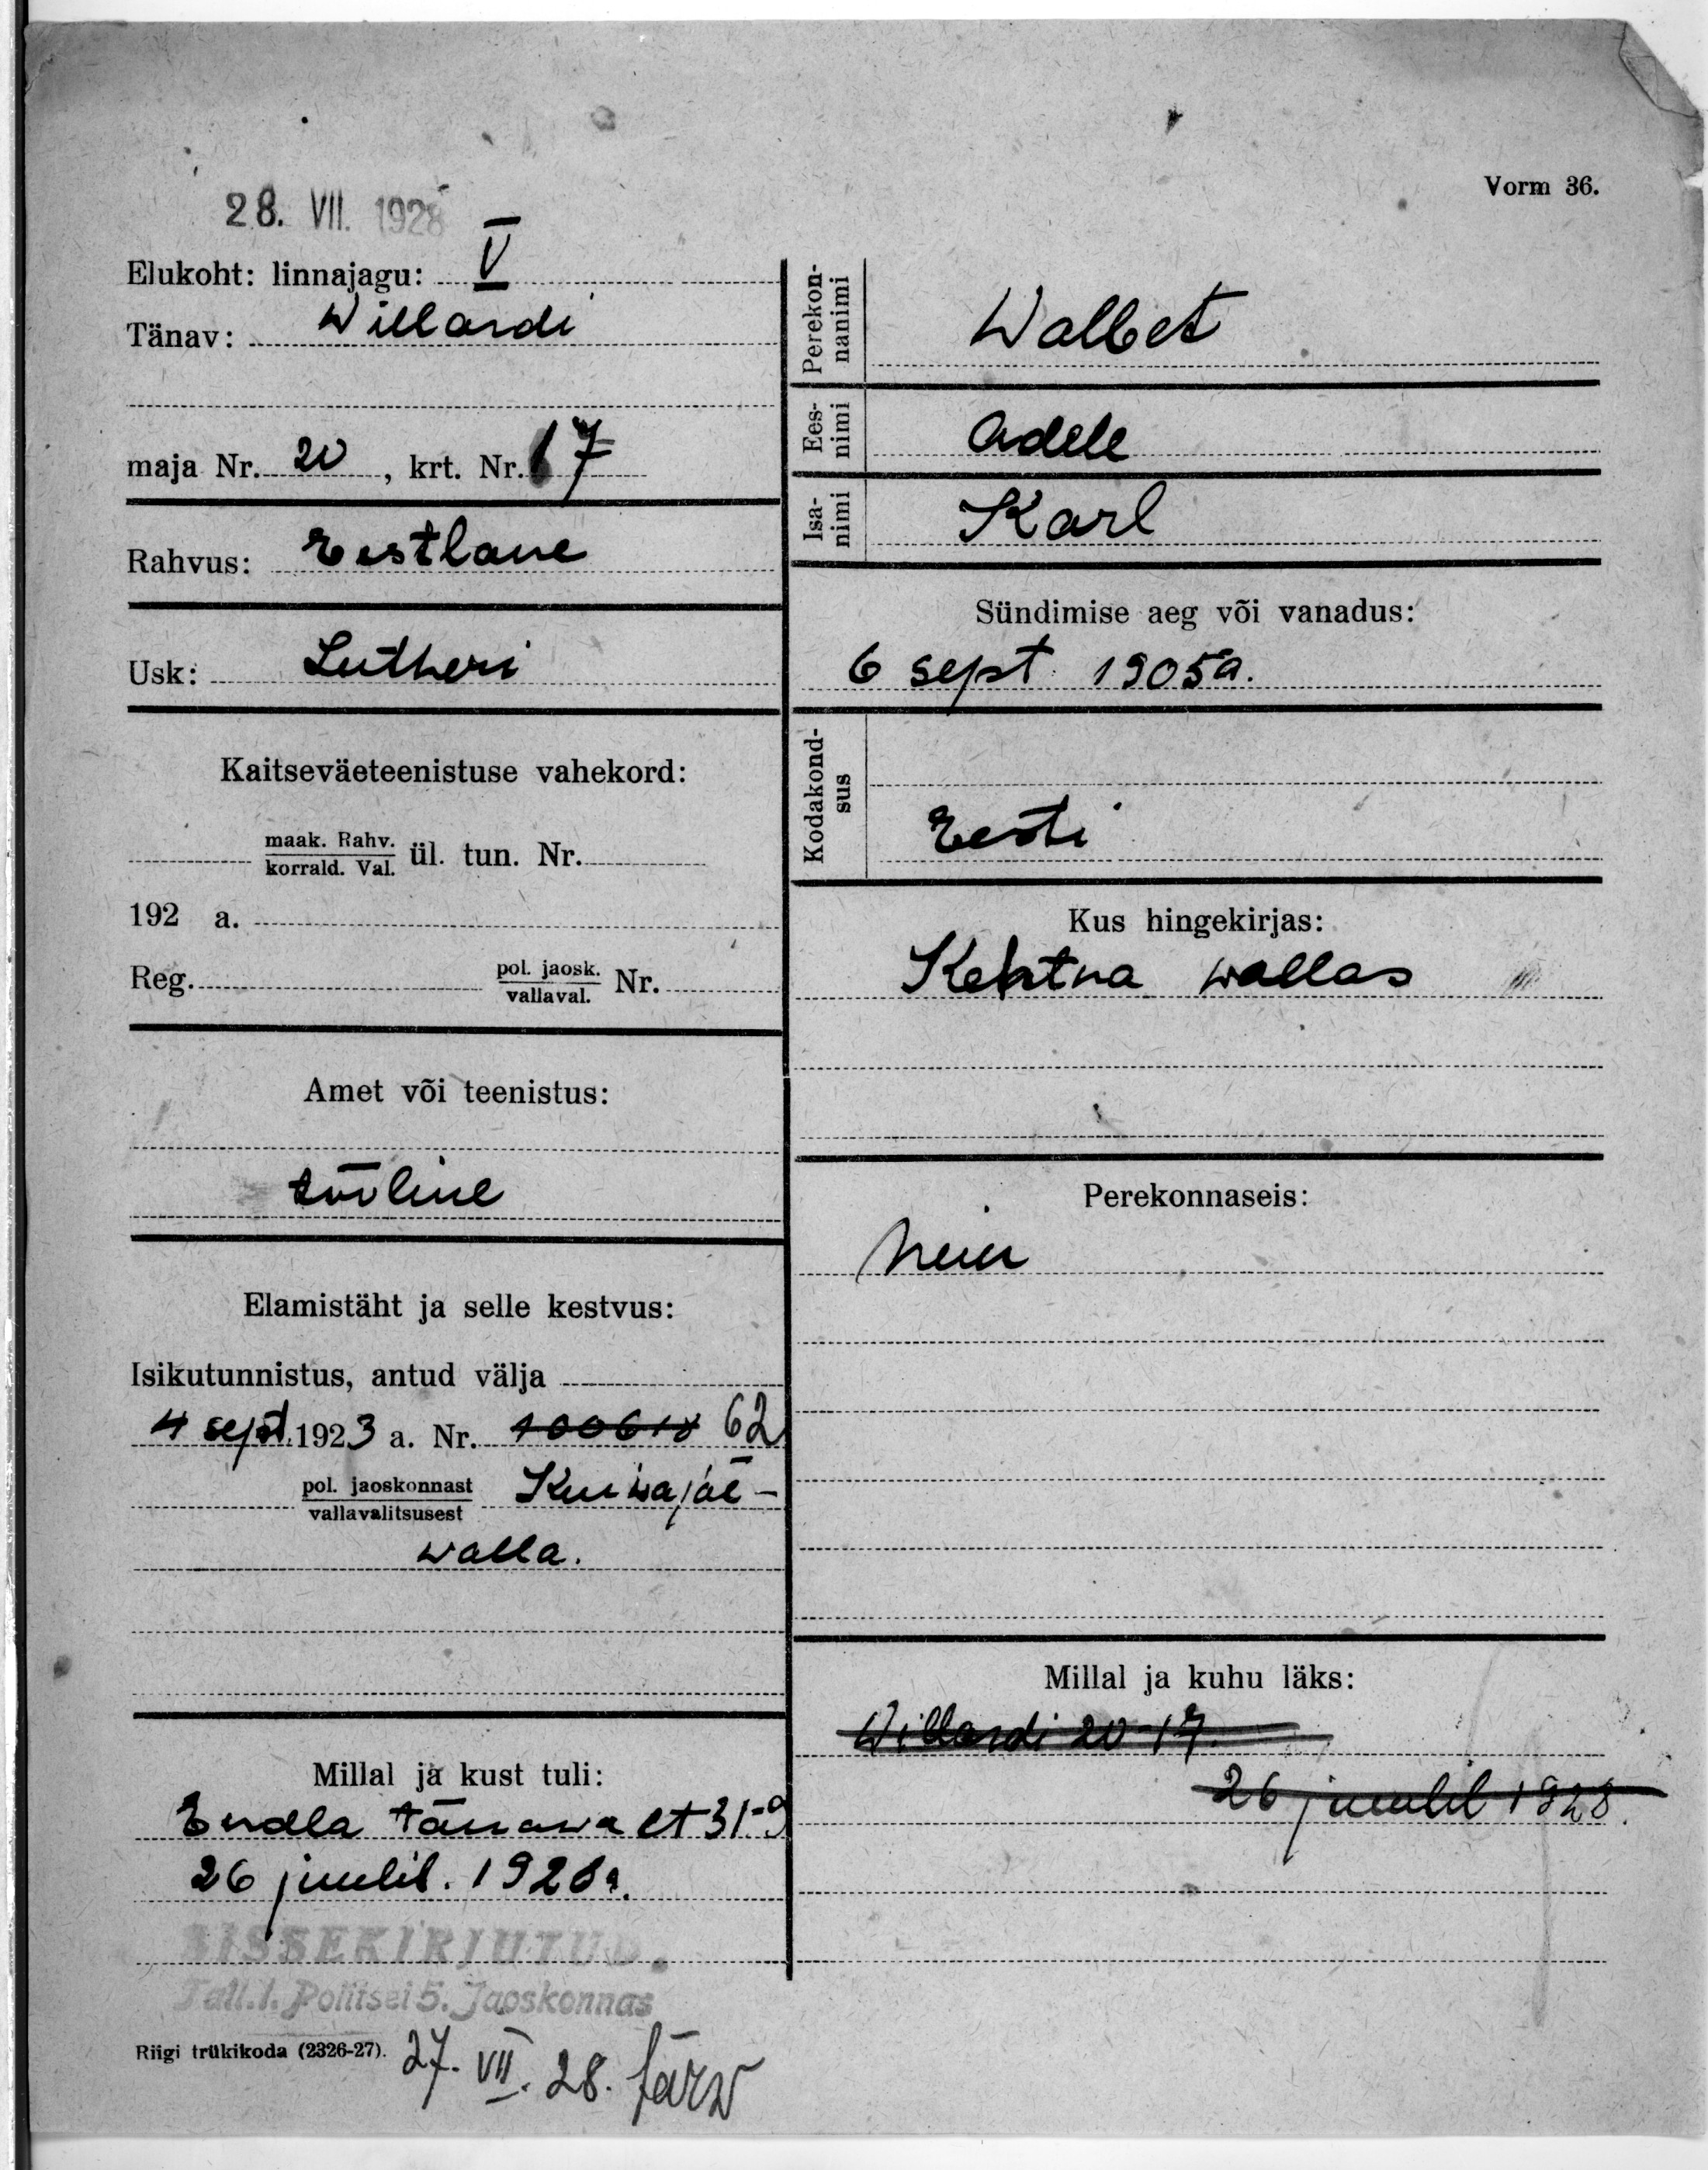 Vorm 36.
28. VII. 1928
Elukoht: linnajagu: V
Tänav: Willardi
maja Nr. 20, krt. Nr. 17
Rahvus: Eestlane
Usk: Lutheri
Kaitseväeteenistuse vahekord:
maak. Rahv.
korrald. Val. ül. tun. Nr.
192 a.
Reg. pol. jaosk.
vallaval. Nr.
Amet või teenistus:
tööline
Elamistäht ja selle kestvus:
Isikutunnistus, antud välja
4 sept. 1923 a. Nr. 100618 62
pol. jaoskonnast
vallavalitsusest Kuiwajõe-
walla.
Millal ja kust tuli:
Endla tänawalt 31-9
26 juulil. 1928 a.
SISSEKIRJUTUD.
Tall.l. Politsei 5. Jaoskonnas
Riigi trükikoda (2326-27).
27. VII. 28. Järw
Perekon-
nanimi
Walbet
Ees-
nimi
Adele
Isa-
nimi
Karl
Sündimise aeg või vanadus:
6 sept. 1905 a.
Kodakond-
sus
Eesti
Kus hingekirjas:
Kehtna wallas
Perekonnaseis:
Neiu
Millal ja kuhu läks:
Willardi 20-17.
26 juulil 1928.